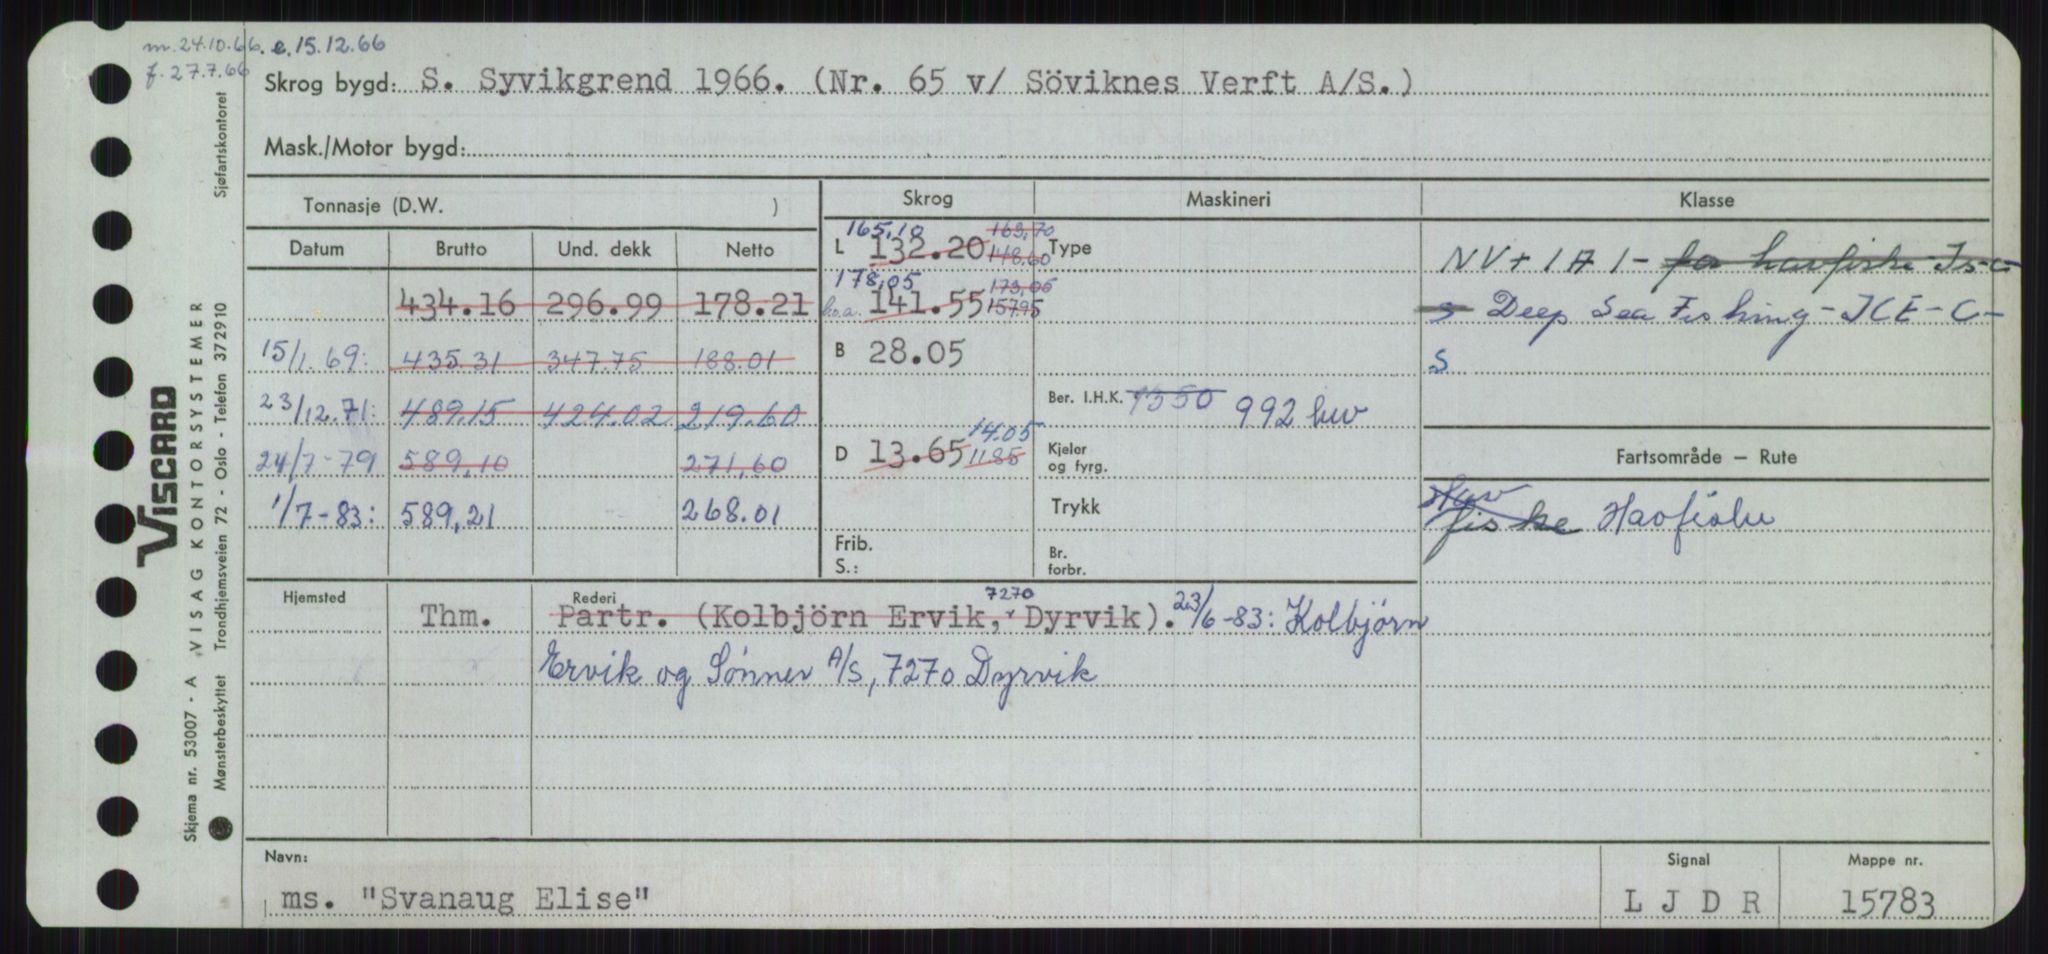 m. 24.10.66. e. 15.12.66
f. 27.7.66
Skrog bygd: S. Syvikgrend 1966. (Nr. 65 v/ Söviknes Verft A/S.)
Mask./Motor bygd:
Tonnasje (D.W. )
Skrog
Maskineri
Klasse
Datum Brutto Und. dekk Netto
434.16 296.99 178.21
15/1.69: 435.31 347.75 188.01
23/12.71: 489.15 424.02 219.60
24/7-79 589,10 271,60
1/7-83: 589,21 268.01
165,10 163,70
L 132.20 148.60
178,05 173,05
l.o.a. 141.55 157.95
B 28.05
14.05
D 13.65 11.85
Frib.
S.:
Type
Ber. I.H.K. 1350 992 hw
Kjeler
og fyrg.
Trykk
Br.
forbr.
NV+1A1- for havfiske Is-C-
S Deep Sea Fishing-ICE-C-
S
Fartsområde – Rute
Hav
fiske Havfiske
Hjemsted
Rederi
7270
Thm. Partr. (Kolbjörn Ervik, Dyrvik). 23/6-83: Kolbjørn
Ervik og Sønner A/S, 7270 Dyrvik
Navn:
ms. "Svanaug Elise"
Signal
L J D R
Mappe nr.
15783
VISCARD
Skjema nr. 53007 - A VISAG KONTORSYSTEMER
Mønsterbeskyttet Trondhjemsveien 72 - Oslo - Telefon 372910 Sjøfartskontoret